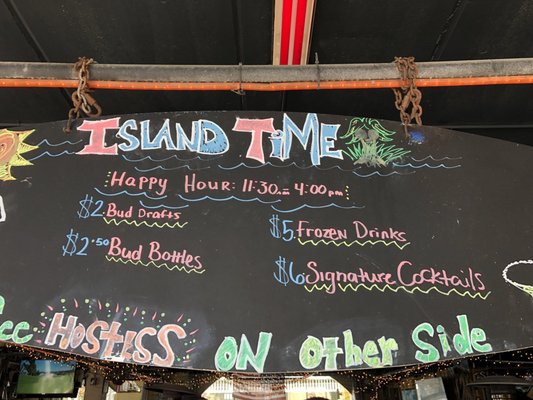 ISLAND TIME
Happy Hour: 11:30am - 4:00pm
$2 Bud Drafts
$2.50 Bud Bottles
$5 Frozen Drinks
$6 Signature Cocktails
See Hostess on Other Side